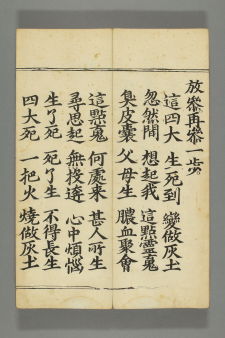 放參再參一步
這四大 生死到 變做灰土
忽然間 想起我 這點靈鬼
臭皮囊 父母生 膿血聚會
這點鬼 何處來 甚人所生
尋思起 無投逩 心中煩惱
生了死 死了生 不得長生
四大死 一把火 燒做灰土